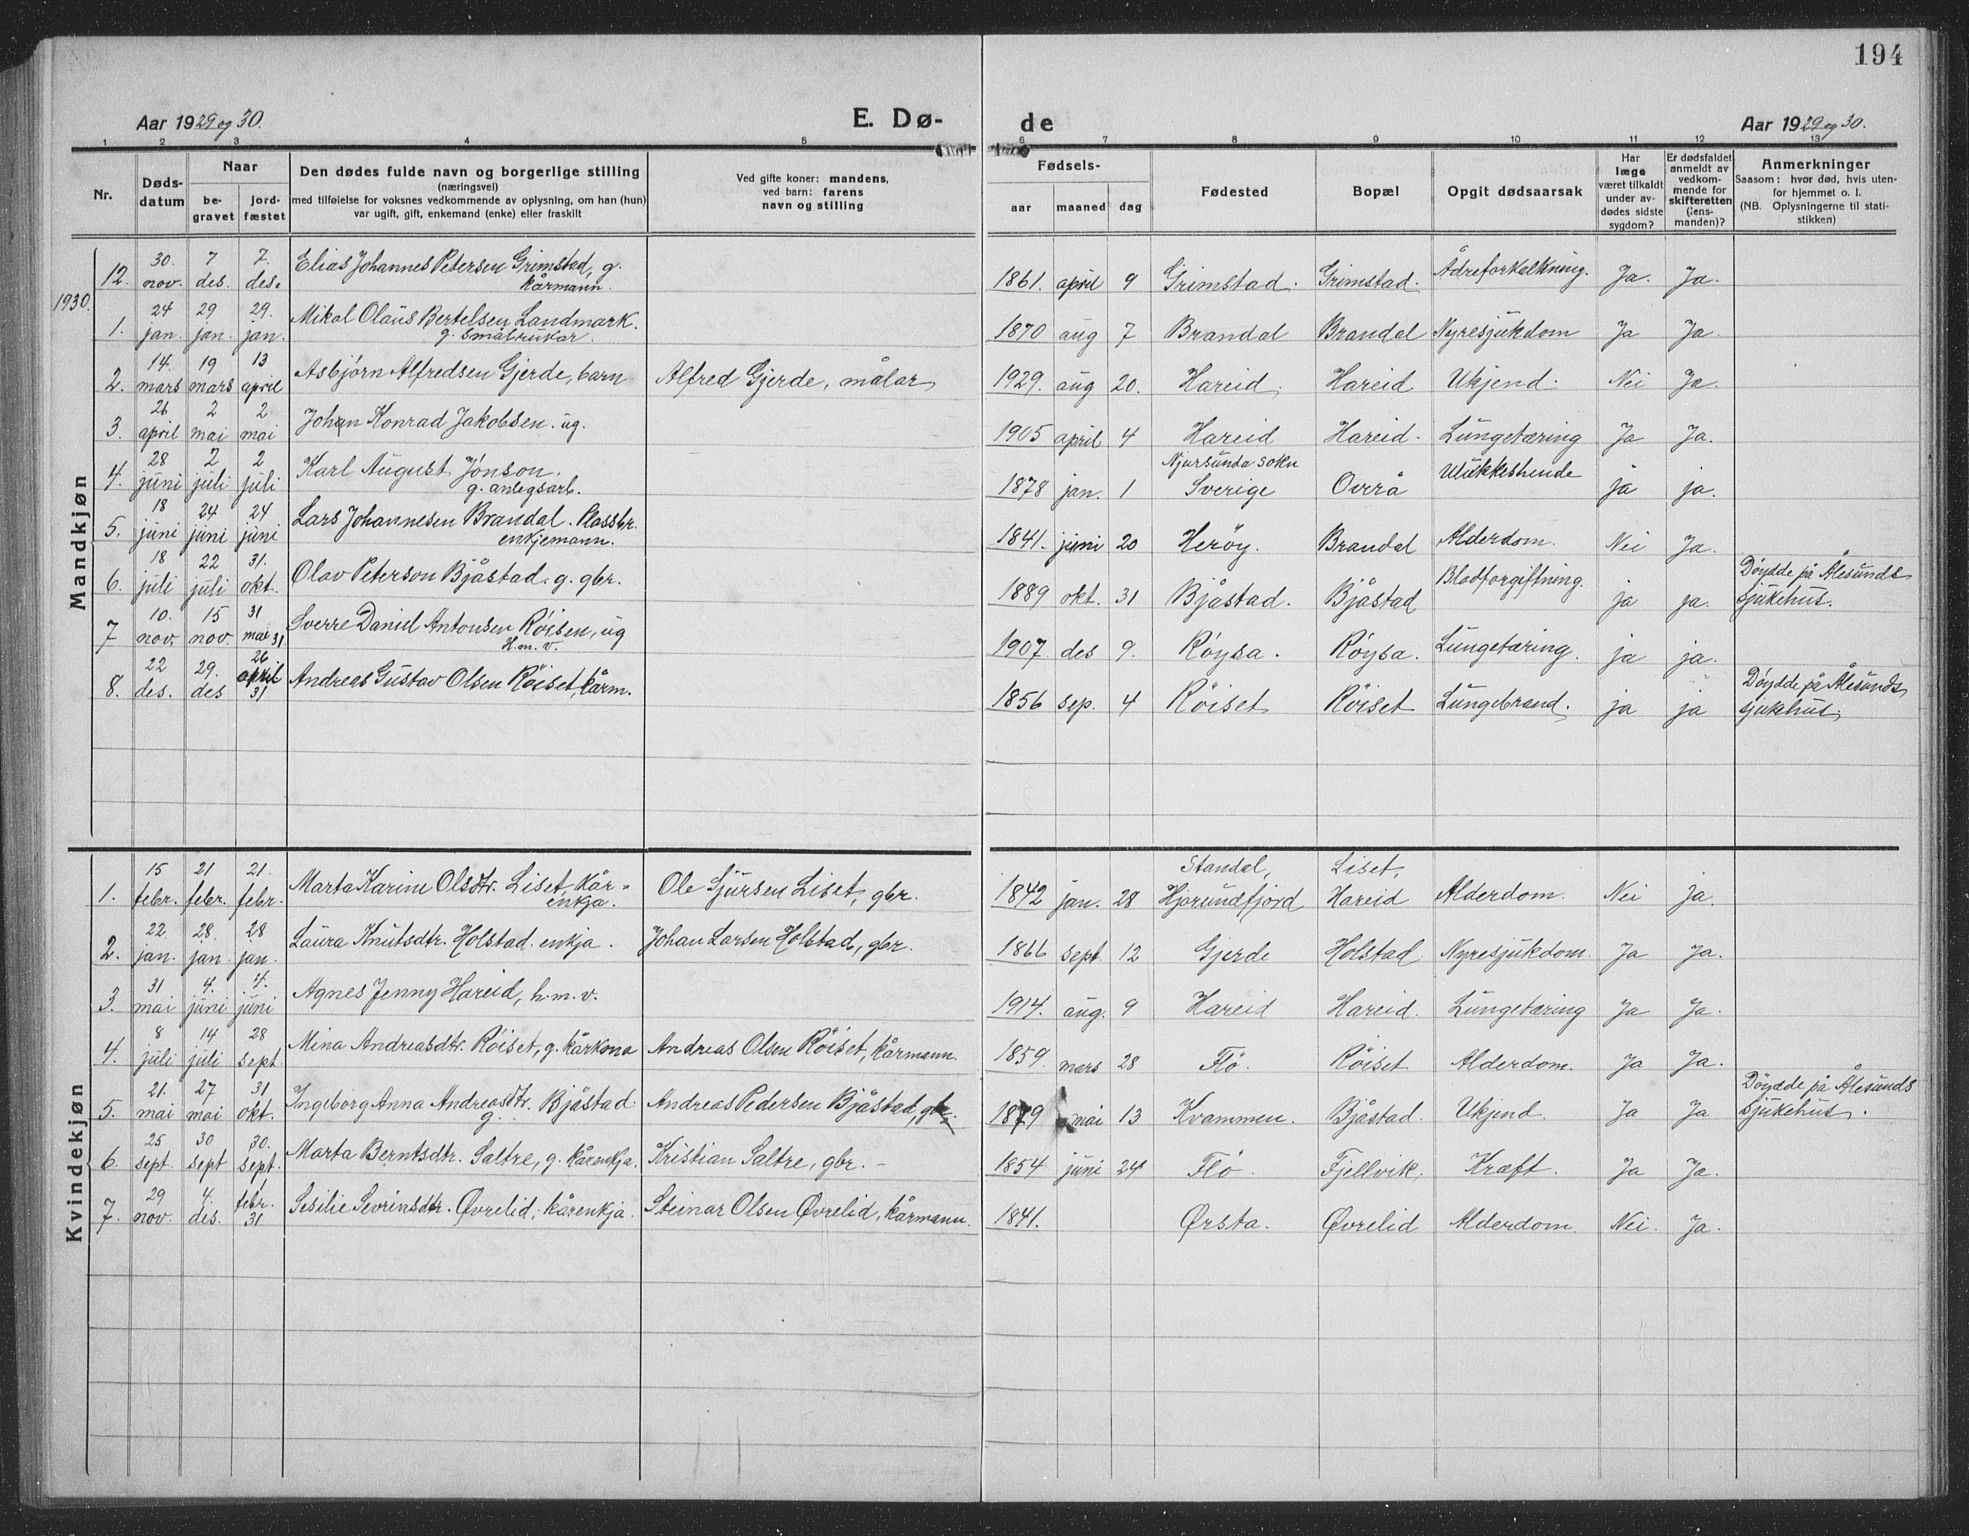 194
Aar 1929 og 30.
E. Dø-
de
Aar 1929 og 30.
1 2 3 4 5 6 7 8 9 10 11 12 13
Nr.
Døds-
datum
Naar
be-
gravet
jord-
fæstet
Den dødes fulde navn og borgerlige stilling
(næringsvei)
med tilføielse for voksnes vedkommende av oplysning, om han (hun)
var ugift, gift, enkemand (enke) eller fraskilt
Ved gifte koner: mandens,
ved barn: farens
navn og stilling
Fødsels-
aar
maaned
dag
Fødested
Bopæl
Opgit dødsaarsak
Har
læge
været tilkaldt
under av-
dødes sidste
sygdom?
Er dødsfaldet
anmeldt av
vedkom-
mende for
skifteretten
(lens-
manden)?
Anmerkninger
Saasom: hvor død, hvis uten-
for hjemmet o. l.
(NB. Oplysningerne til stati-
stikken)
Mandkjøn
12. 30. nov. 7 des. 7. des. Elias Johannes Petersen Grimstad, g. kårmann. 1861. april 9 Grimstad. Grimstad. Adreforkalkning. Ja. Ja.
1930.
1. 24 jan. 29 jan. 29. jan. Mikal Olaus Bertelsen Landmark. g. småbrukar. 1870 aug 7 Brandal Brandal Nyresjukdom Ja Ja.
2. 14. mars 19 mars 13 april Asbjørn Alfredsen Gjerde, barn Alfred Gjerde, målar 1929. aug 20. Hareid. Hareid. Ukjend. Nei Ja.
3. 26 april 2 mai 2 mai Johan Konrad Jakobsen. ug. 1905 april 4 Hareid Hareid. Lungetæring Ja Ja.
4. 28 juni 2 juli 2 juli Karl August Jonson. g. anlegsarb. 1878 jan. 1 Njursunda sokn Sverige Overå Ulukkeshende ja ja.
5. 18 juni 24 juni 24 juni Lars Johannesen Brandal. Plassbr. enkjemann. 1841. juni 20 Herøy. Brandal Alderdom. Nei Ja.
6. 18 juli 22 juli 31. okt. Olav Peterson Bjåstad. g. gbr. 1889 okt. 31 Bjåstad. Bjåstad Blodforgiftning. ja ja. Døydde på Ålesunds sjukehus.
7 10. nov. 15 nov. 31 mai 31 Sverre Daniel Antonsen Røisen, ug H.m.v. 1907 des 9. Røysa. Røysa. Lungetæring. ja ja.
8. 22 des. 29. des 26 april 31 Andreas Gustav Olsen Røiset, kårm. 1856 sep. 4 Røiset Røiset Lungebrand. ja ja Døydde på Ålesunds sjukehus.
Kvindekjøn
1. 15 febr. 21 febr. 21. febr. Marta Karine Olsdtr. Liset, kår-enkja. Ole Sjursen Liset, gbr. 1842 jan. 28 Standal, Hjørundfjord Liset, Hareid Alderdom. Nei ja.
2. 22 jan. 28. jan. 28 jan. Laura Knutsdtr. Holstad. enkja. Johan Larsen Holstad, gbr. 1866 sept. 12 Gjerde Holstad. Nyresjukdom. Ja Ja.
3. 31 mai 4. juni 4. juni Agnes Jenny Hareid, h.m.v. 1914. aug. 9 Hareid Hareid. Lungetæring Ja Ja.
4. 8 juli 14 juli 28 sept. Mina Andreasdtr. Røiset, g. kårkona Andreas Olsen Røiset, kårmann. 1859. mars 28 Flø. Røiset Alderdom. Ja Ja.
5. 21. mai 27 mai 31 okt. Ingeborg Anna Andreasdtr. Bjåstad g. Andreas Pedersen Bjåstad, gbr. 1879 mai 13 Kvammen. Bjåstad. Ukjend. Ja Ja Døydde på Ålesunds Sjukehus.
6. 25 sept. 30 sept 30. sept. Marta Berntsdtr. Saltre, g. kårenkja. Kristian Saltre, gbr. - 1854 juni 24 Flø. Fjellvik. Kræft. Ja Ja.
7. 29 nov. 4. des. febr. 31 Sesilie Sevrinsdtr. Øvrelid, kårenkja. Steinar Olsen Øvrelid, kårmann. 1841. Ørsta. Øvrelid Alderdom. Nei. Ja.